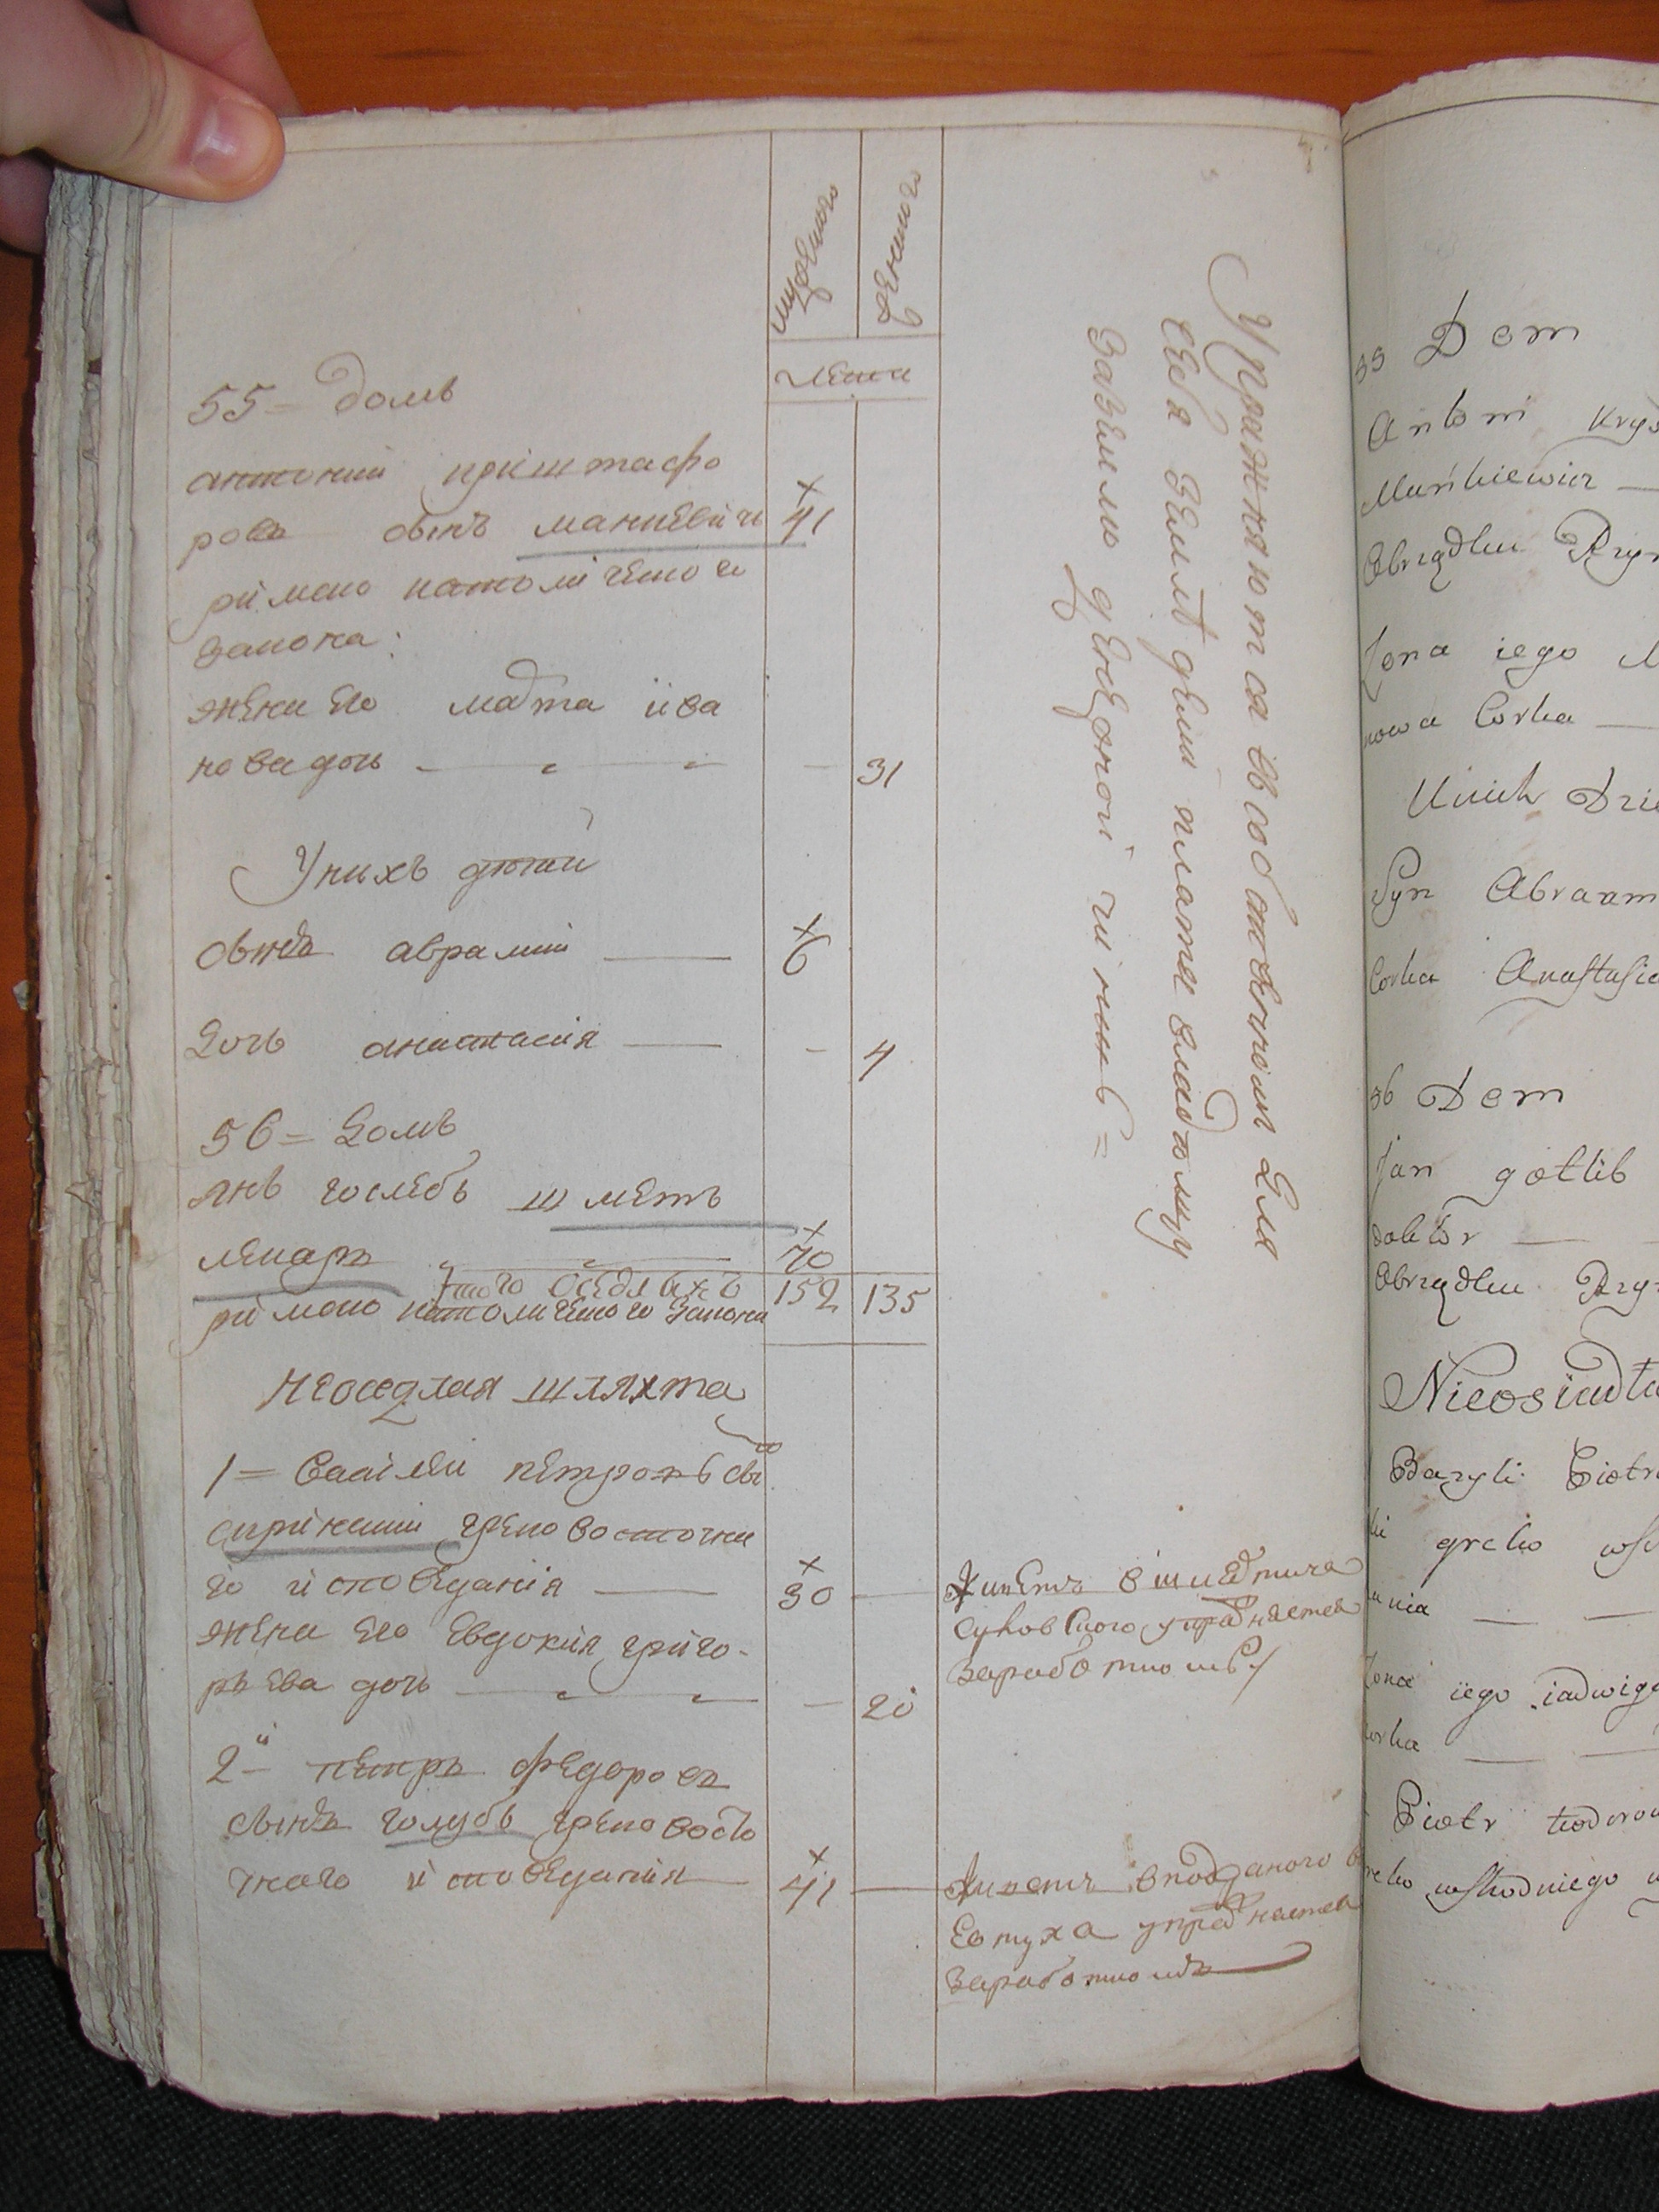 мужеска
женска
лета
55 = домъ
антоний криштафо
ровъ сынъ манкевичъ
× 41
римско католического
закона:
жена его мадта ива
нова дочь — — 31
У нихъ детей
сынъ аврамий — × 6
Дочь анастасия — - 4
56 = Домъ
янъ гослебъ шметъ
лекаръ × 70
итого оседлыхъ 152 135
римско католического закона
неоседлая шляхта
1 = Василей петровъ сы
гречко восточна
го исповедания — × 30 —
жена его Евдокия григо-
рьева дочь — — 20
2й = петръ федоровъ
сынъ голубъ греко восто
чнаго исповедания — × 41 —
Упражняются въ собственной для
себя земле и платы владелцу
за землю
Живетъ в
упражняется
заработкомъ
Живетъ в подданого
Евтуха упражняется
заработкомъ
55 Dom
Antoni Krys
Mańkiewicz —
Obrządku Rzym
Żona iego M
nowa Corka —
U nich Dzie
Syn Abraam
Corka Anastasia
56 Dom
Jan gotlib
doktor —
Obrządku Rzym
Nieosiadła
Bazyli Piotr
greko wsc
nia — —
Żona iego iadwiga
corka — —
Piotr teodorow
greko wschodniego